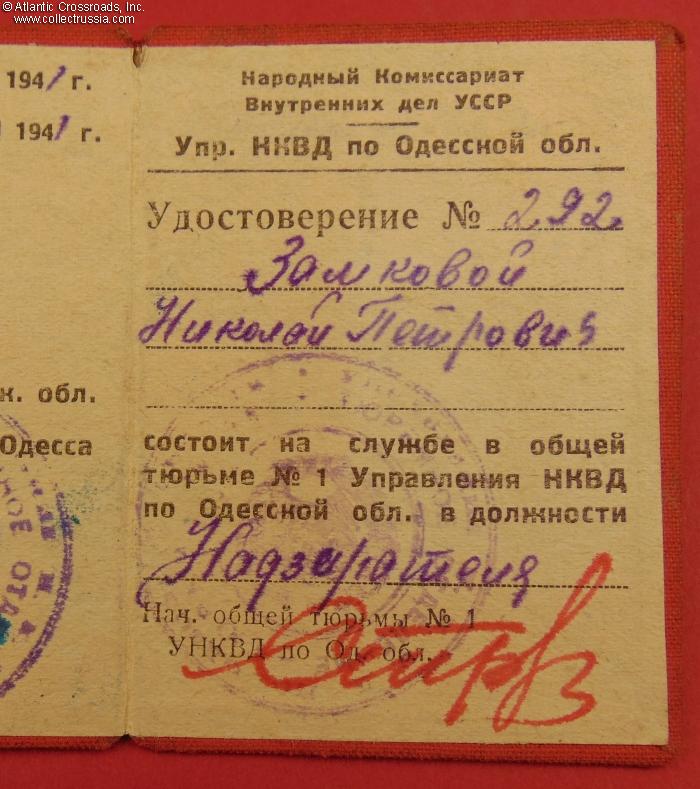 © Atlantic Crossroads, Inc.
www.collectrussia.com
1941 г.
1941 г.
к. обл.
Одесса
Народный Комиссариат
Внутренних дел УССР
Упр. НКВД по Одесской обл.
Удостоверение № 292
Замковой
Николай Петрович
состоит на службе в общей
тюрьме № 1 Управления НКВД
по Одесской обл. в должности
Надзирателя
Нач. общей тюрьмы № 1
УНКВД по Од. обл.